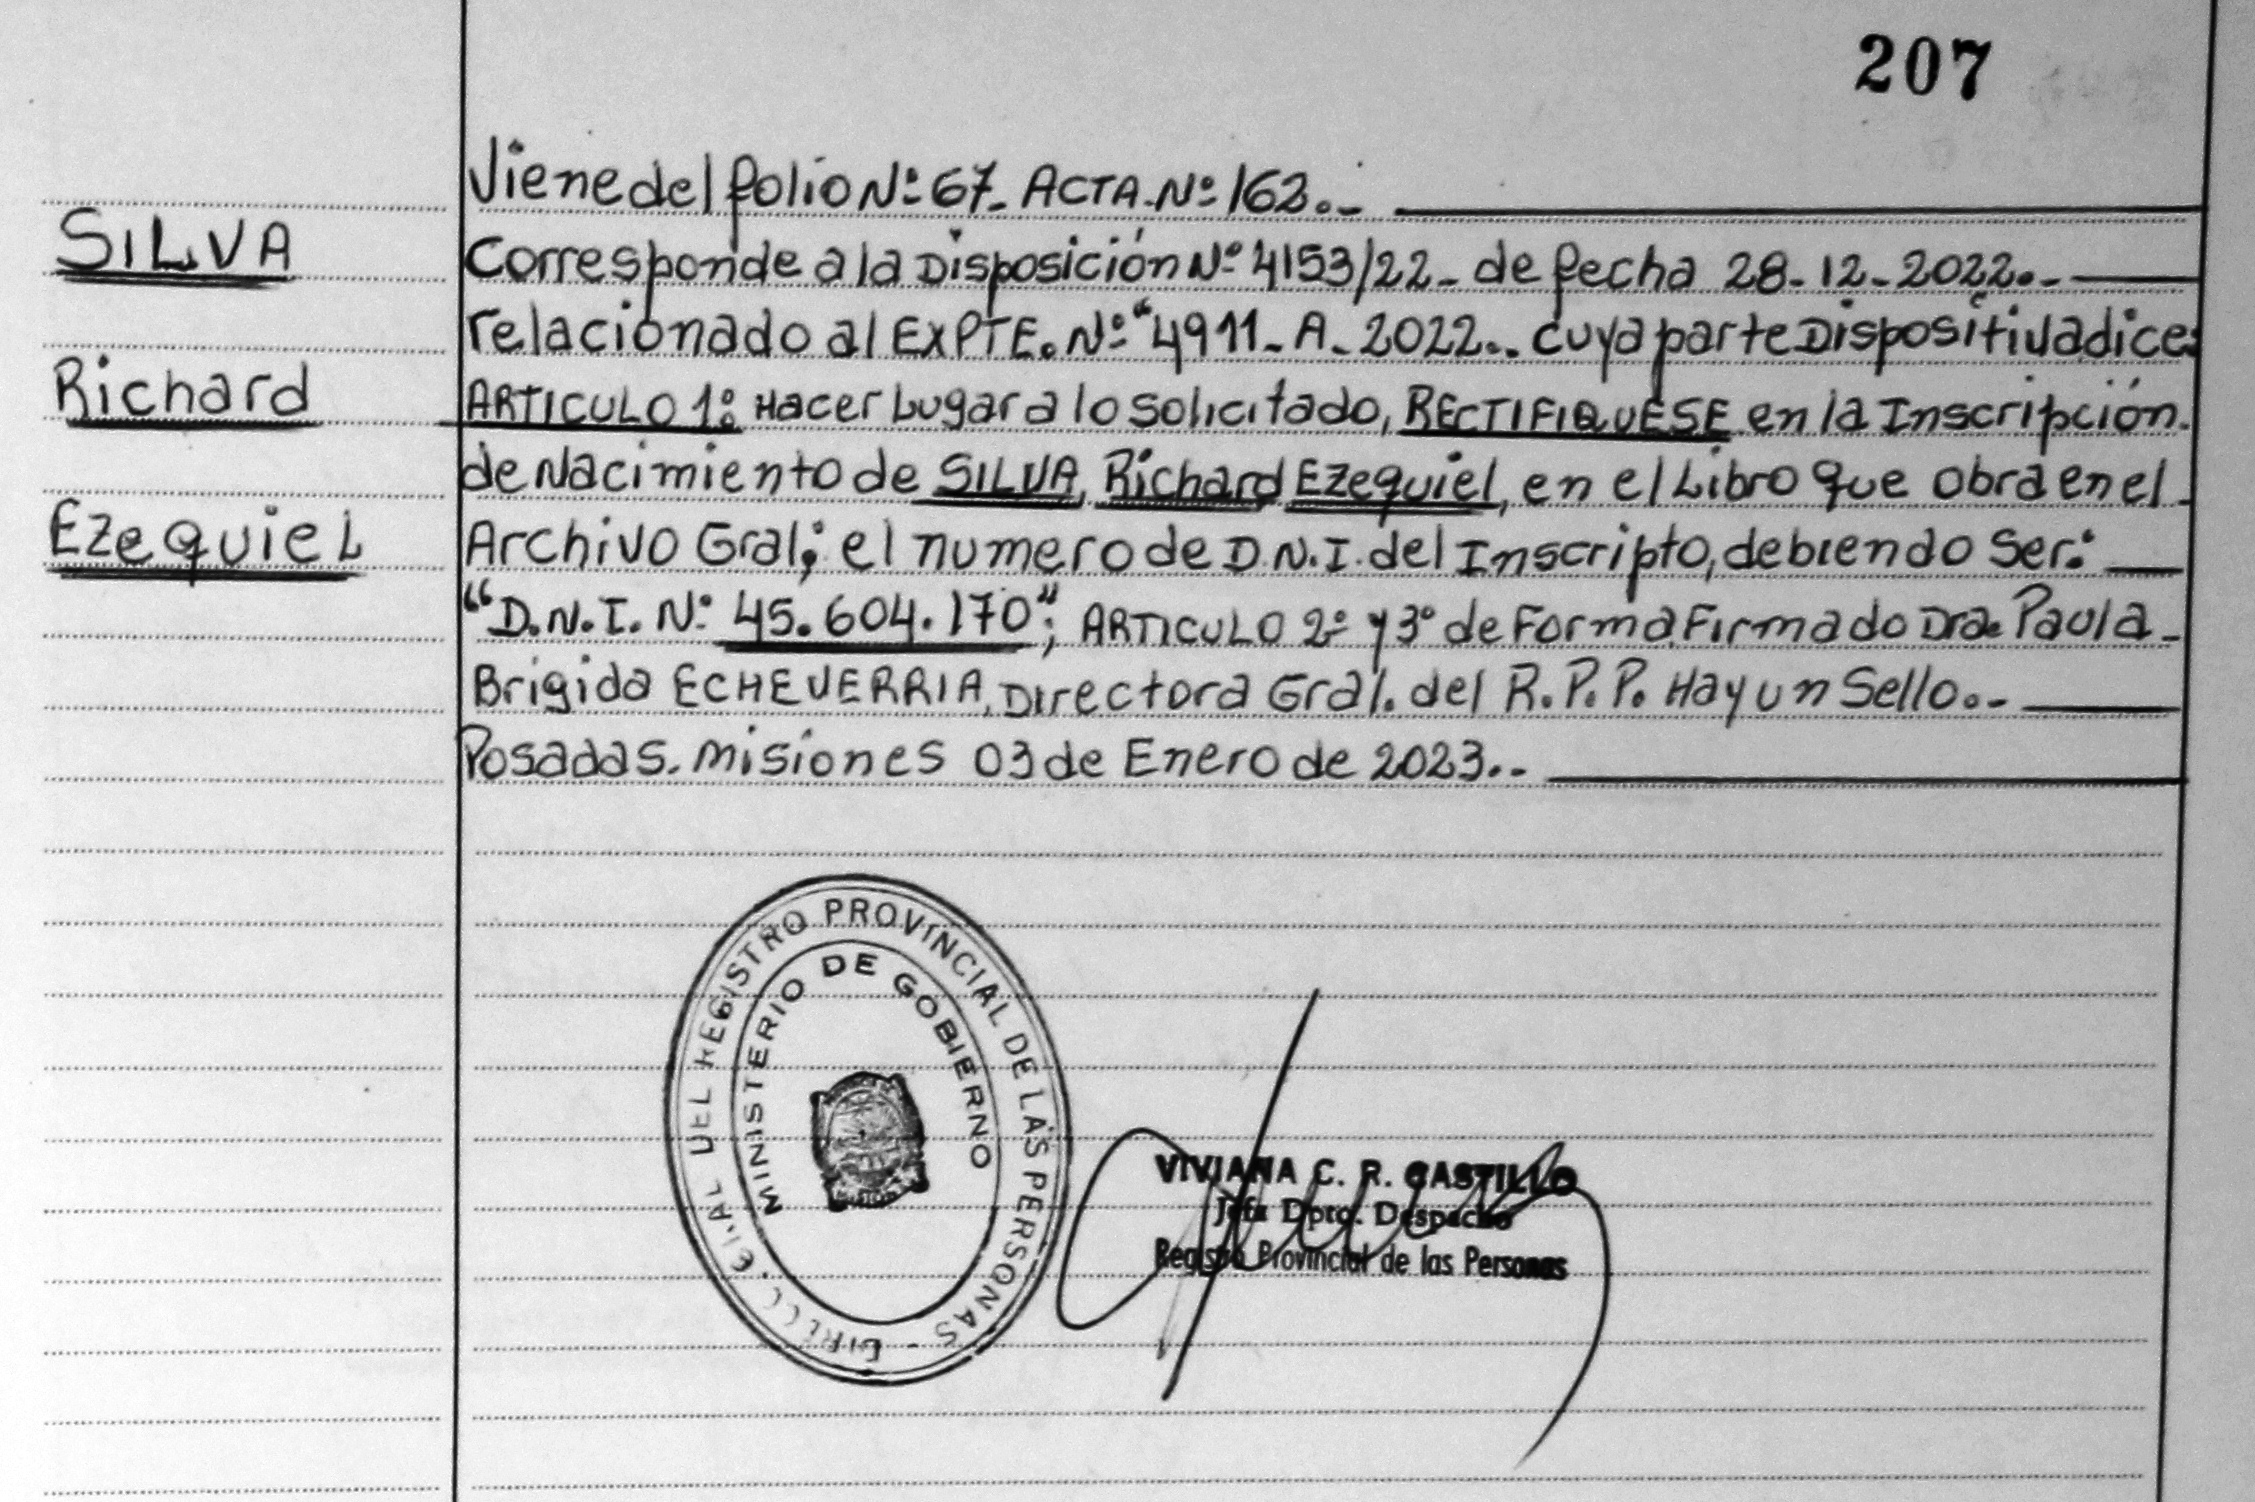 207
Viene del folio Nº 67_ ACTA. Nº 162._
SILVA
Corresponde a la Disposición Nº 4153/22_ de fecha 28-12-2022._
relacionado al EXPTE. Nº "4911_A_2022.. cuya parte Dispositiva dice:
Richard
ARTICULO 1º: Hacer Lugar a lo solicitado, RECTIFIQUESE en la Inscripción
de Nacimiento de SILVA, Richard Ezequiel, en el Libro que obra en el
Ezequiel
Archivo Gral; el numero de D.N.I. del Inscripto, debiendo Ser:
"D.N.I. Nº 45.604.170"; ARTICULO 2º y 3º de Forma, Firmado Dra. Paula
Brigida ECHEVERRIA, Directora Gral. del R.P.P. Hay un Sello._
Posadas. Misiones 03 de Enero de 2023._
DEL REGISTRO PROVINCIAL DE LAS PERSONAS -
MINISTERIO DE GOBIERNO
VIVIANA C. R. CASTILLO
Jefa Dpto. Despacho
Registro Provincial de las Personas